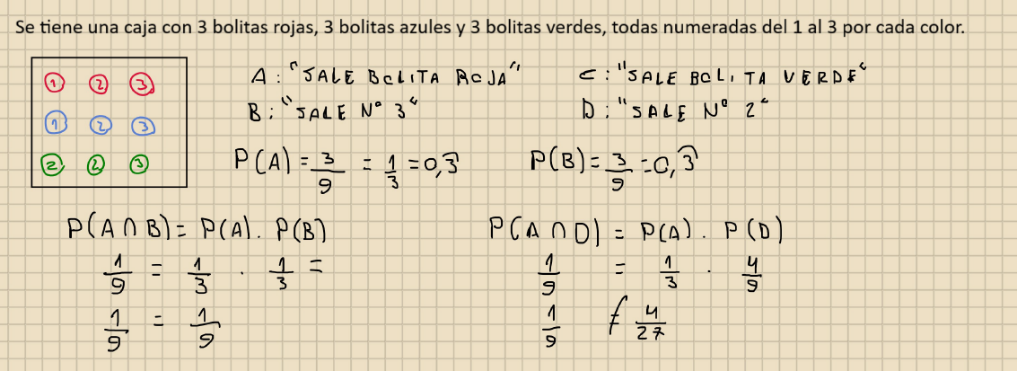 Se tiene una caja con 3 bolitas rojas, 3 bolitas azules y 3 bolitas verdes, todas numeradas del 1 al 3 por cada color.
1 2 3
1 2 3
2 2 3
A: "SALE BOLITA ROJA"
C: "SALE BOLITA VERDE"
B: "SALE Nº 3"
D: "SALE Nº 2"
P(A) = 3/9 = 1/3 = 0,3̂
P(B) = 3/9 = 0,3̂
P(A ∩ B) = P(A) . P(B)
1/9 = 1/3 . 1/3 =
1/9 = 1/9
P(A ∩ D) = P(A) . P(D)
1/9 = 1/3 . 4/9
1/9 ≠ 4/27